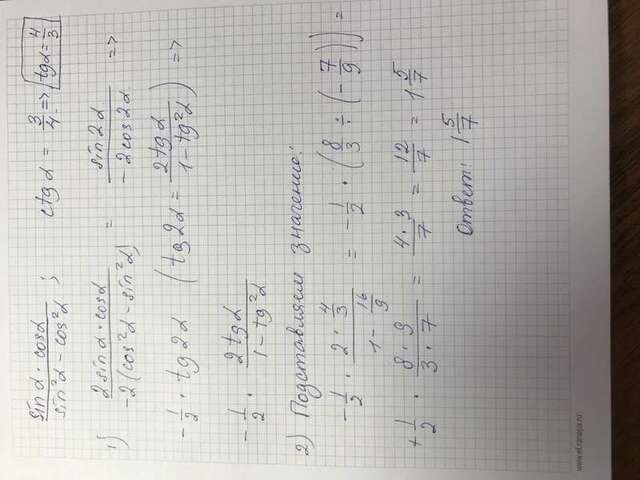 sinα · cosα / sin²α - cos²α ; ctgα = 3/4 => tgα = 4/3
1) 2sinα · cosα / -2(cos²α - sin²α) = sin2α / -2cos2α =>
-1/2 · tg2α (tg2α = 2tgα / 1-tg²α) =>
-1/2 · 2tgα / 1-tg²α
2) Подставляем значению:
-1/2 · 2·4/3 / 1-16/9 = -1/2 · (8/3 ÷ (-7/9)) =
+1/2 · 8·9 / 3·7 = 4·3/7 = 12/7 = 1 5/7
Ответ: 1 5/7